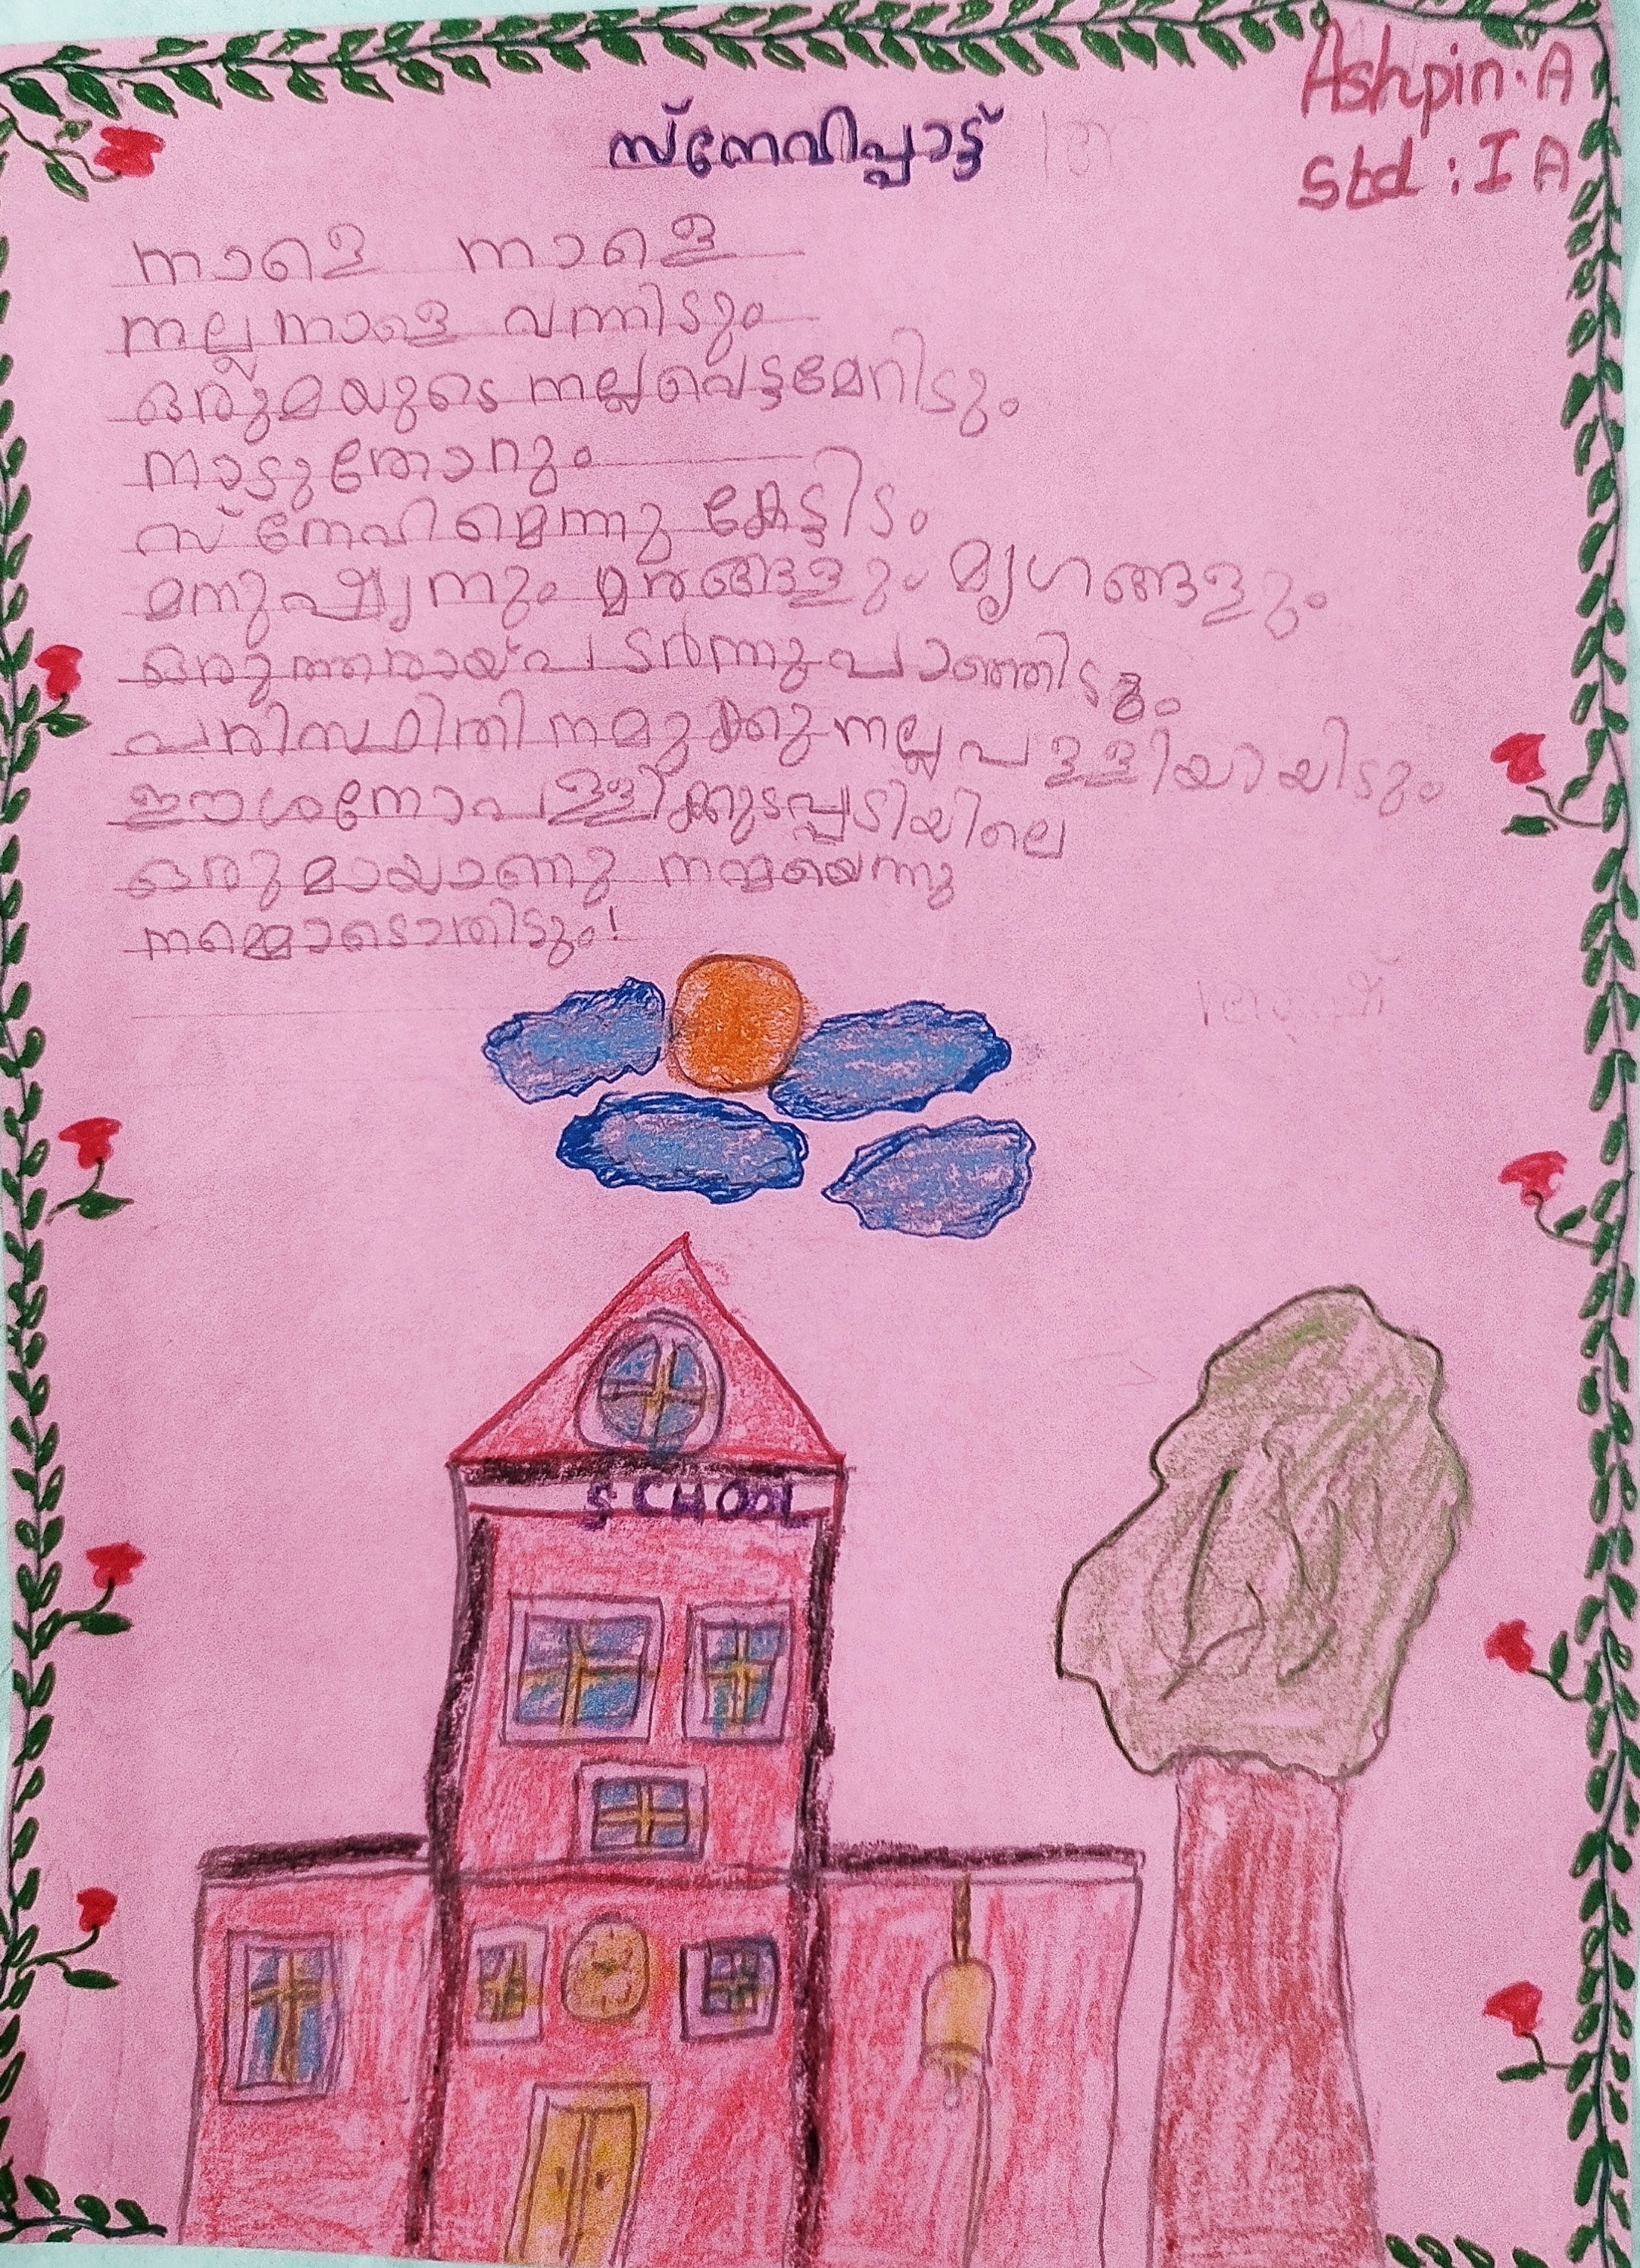 Ashpin. A
Std : I A
സ്നേവിപ്പാട്ട്
നാളെ നാളെ
നല്ല നാളെ വന്നിടും
ഒരുമയുടെ നല്ല വെട്ടമേറിടും
നാടുതോറും
സ്നേഹിമെന്നു കേട്ടിടം
മനുഷ്യനും മരങ്ങളും മൃഗങ്ങളും
ഒരുത്തരായ് പടർന്നു പാഞ്ഞിടും
പരിസ്ഥിതി നമുക്കു നല്ല പള്ളിയായിടും
ഈശനോ പള്ളിക്കുടപ്പടിയിലെ
ഒരുമായാണു നന്മയെന്നു
നമ്മൊടൊതിടും!
SCHOOL